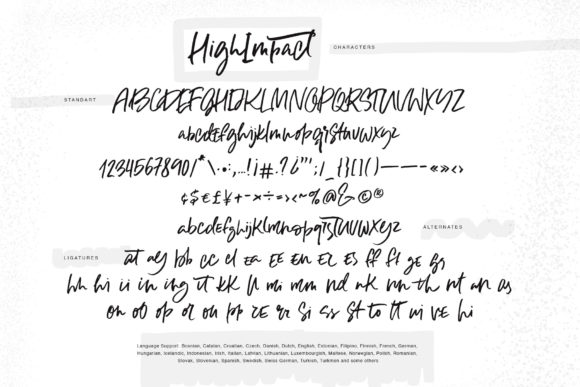 HighImpact
CHARACTERS
STANDART
ABCDEFGHIJKLMNOPQRSTUVWXYZ
abcdefghijklmnopqrstuvwxyz
1234567890/*\·•:,...!¡#.?¿"';/_{}[]()—–-«»<>
¢$€£¥+-×÷=><~%@&©®
abcdefghijklmnopqrstuvwxyz
ALTERNATES
LIGATURES
at ay bb cc cl ea EE en er es ff fl ge gs
hh hi ii in ing it kk ll mi mm nd nk nn th nt an as
on ot op or ou pp re rr si ss st to tt ui ve hi
Language Support: Bosnian, Catalan, Croatian, Czech, Danish, Dutch, English, Estonian, Filipino, Finnish, French, German,
Hungarian, Icelandic, Indonesian, Irish, Italian, Latvian, Lithuanian, Luxembourgish, Maltese, Norwegian, Polish, Romanian,
Slovak, Slovenian, Spanish, Swedish, Swiss German, Turkish, Turkmen and some others